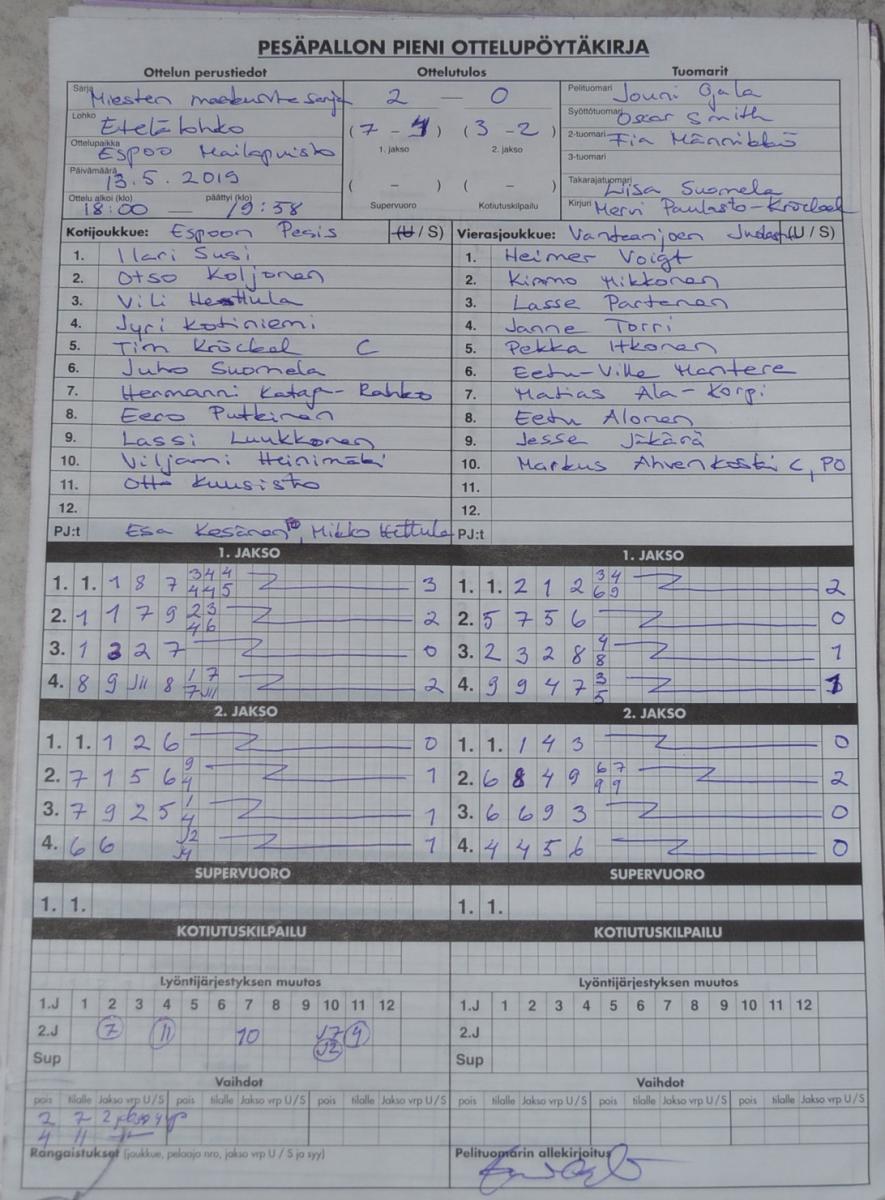 PESÄPALLON PIENI OTTELUPÖYTÄKIRJA
Ottelun perustiedot Ottelutulos Tuomarit
Sarja Miesten maakuntasarja 2 — 0 Pelituomari Jouni Ojala
Lohko Etelälohko (7 - 4) (3 - 2) Syöttötuomari Oscar Smith
1. jakso 2. jakso 2-tuomari Fia Männikkö
Ottelupaikka Espoo Mailapuisto 3-tuomari
Päivämäärä 13.5.2019 ( - ) ( - ) Takarajatuomari Liisa Suomela
Ottelu alkoi (klo) 18:00 — päättyi (klo) 19:58 Supervuoro Kotiutuskilpailu Kirjuri Mervi Paulasto-Kröckel
Kotijoukkue: Espoon Pesis (U / S) Vierasjoukkue: Vantaanjoen (U / S)
1. Ilari Susi 1. Heimer Voigt
2. Otso Koljonen 2. Kimmo Mikkonen
3. Vili Hettula 3. Lasse Partanen
4. Jyri Kotiniemi 4. Janne Torri
5. Tim Kröckel C 5. Pekka Itkonen
6. Juho Suomela 6. Eetu-Ville Mantere
7. Hermanni Kataja-Rahko 7. Matias Ala-Korpi
8. Eero Putkinen 8. Eetu Alonen
9. Lassi Luukkonen 9. Jesse Jäkärä
10. Viljami Heinimäki 10. Markus Ahvenkoski C, PO
11. Otto Kuusisto 11.
12. 12.
PJ:t Esa Kesänen, Mikko Hettula PJ:t
1. JAKSO 1. JAKSO
1. 1. 1 8 7 3 4 4 3 1. 1. 2 1 2 3 4 2
4 4 5 6 9
2. 1 1 7 9 2 3 2 2. 5 7 5 6 0
4 6
3. 1 3 2 7 0 3. 2 3 2 8 4 1
8
4. 8 9 JII 8 1 7 2 4. 9 9 4 7 3 1
7 JII 5
2. JAKSO 2. JAKSO
1. 1. 1 2 6 0 1. 1. 1 4 3 0
2. 7 1 5 6 9 1 2. 6 8 4 9 6 7 2
4 9 9
3. 7 9 2 5 1 1 3. 6 6 9 3 0
4
4. 6 6 J2 1 4. 4 4 5 6 0
J4
SUPERVUORO SUPERVUORO
1. 1. 1. 1.
KOTIUTUSKILPAILU KOTIUTUSKILPAILU
Lyöntijärjestyksen muutos Lyöntijärjestyksen muutos
1.J 1 2 3 4 5 6 7 8 9 10 11 12 1.J 1 2 3 4 5 6 7 8 9 10 11 12
2.J 7 11 10 J7 4 2.J
Sup J2 Sup
Vaihdot Vaihdot
pois tilalle Jakso vrp U/S pois tilalle Jakso vrp U/S pois tilalle Jakso vrp U/S pois tilalle Jakso vrp U/S pois tilalle Jakso vrp U/S pois tilalle Jakso vrp U/S
2 7 2 jakso 4 vp
4 11 -"-
Rangaistukset (joukkue, pelaaja nro, jakso vrp U / S ja syy) Pelituomarin allekirjoitus